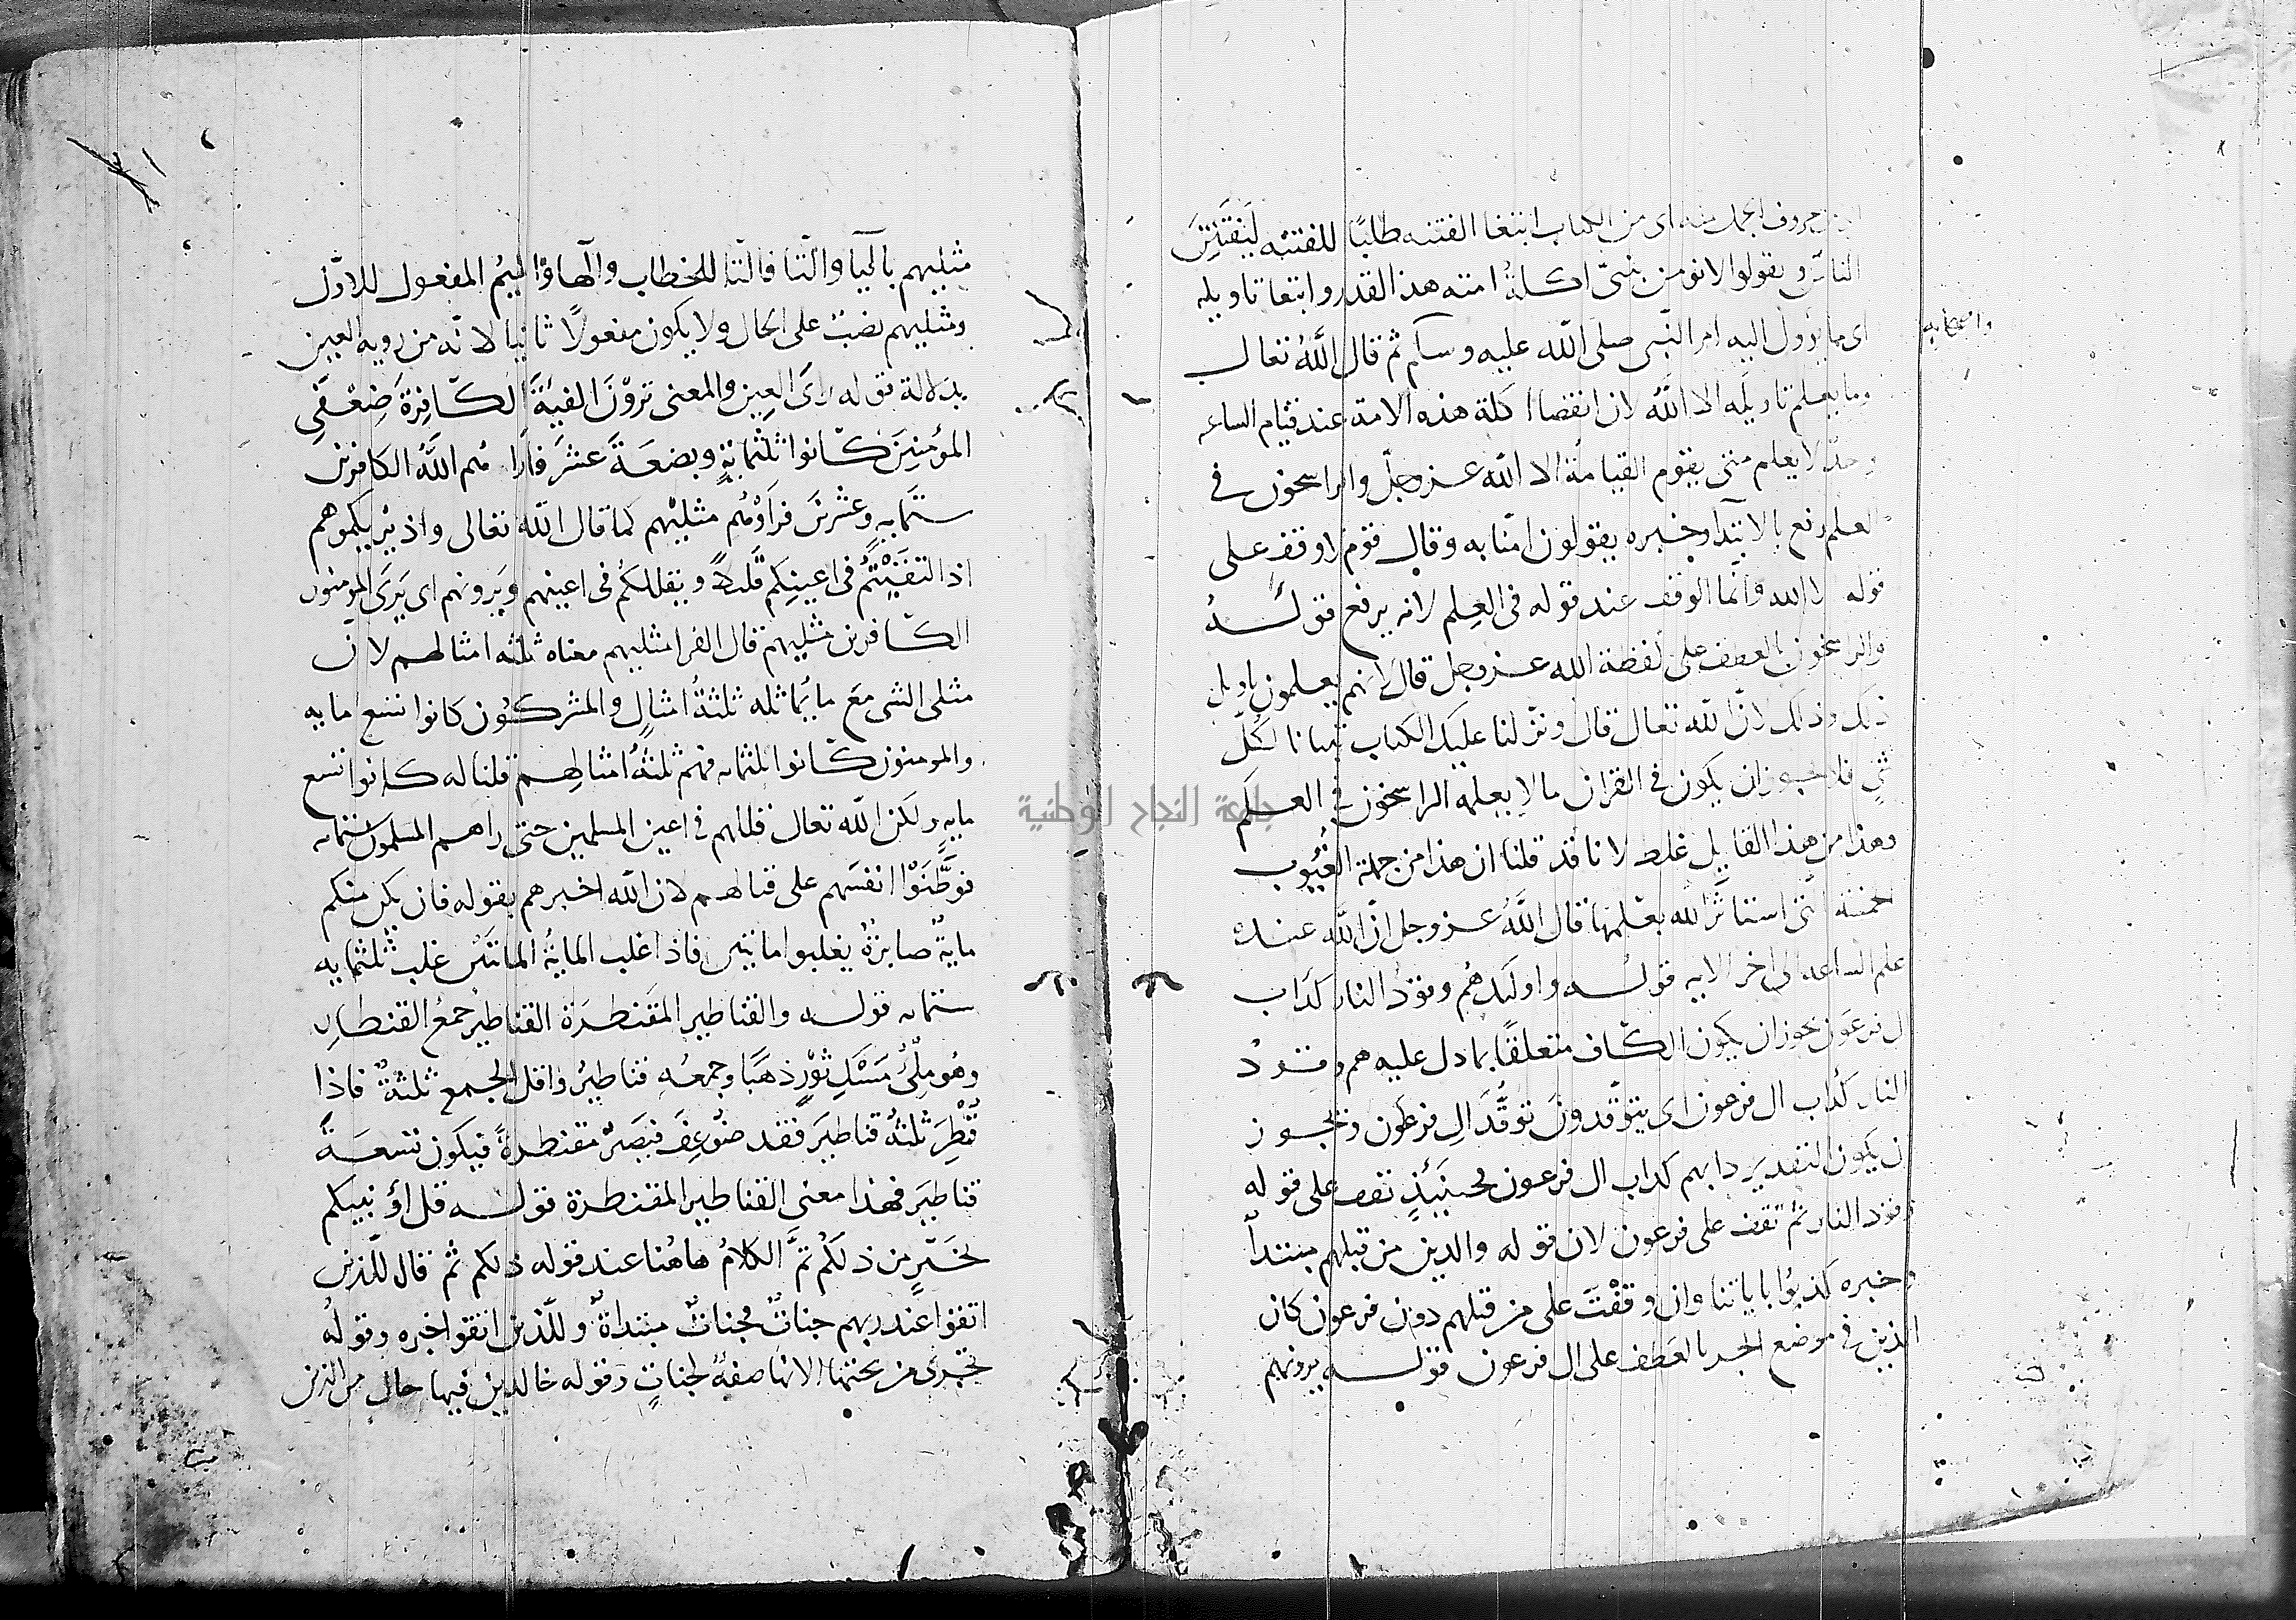 حروف الجمل منه اى من الكتاب ابتغا الفتنه طلبًا للفتنه ليفتتن
الناس ويقولوا لانومن بنبىّ اكلة امته هذا القدر وابتغا تاويله
اى ما يؤول اليه امر النّبى صلى الله عليه وسلم ثم قال اللّٰهُ تعالى
واصحابه
وما يعلم تاويله الا اللّٰهُ لان انقضاا كلة هذه الامة عند قيام الساعه
لا يعلم متى يقوم القيامة الا الله عزوجلّ والراسخون فى
العلم رفع بالابتدآ وخبره يقولون امنّا به وقال قوم لا وقف على
قوله الا الله وانّما الوقف عند قوله فى العِلم لانه يرفع قولهُ
والراسخون بالعطف على لفظة الله عزوجل قال لانهم يعلمون تاويل
ذلك وذلك لانّ الله تعالى قال ونزّلنا عليك الكتاب تبيانا لكلّ
شئ فلا يجوز ان يكون فى القران ما لا يعلمه الراسخون فى العلم
وهذا من هذا القايل غلط لانا قد قلنا ان هذا من جملة الغُيُوب
الخمسة التى استاثر الله بعلمها قال اللّٰهُ عزوجل انّ اللّٰه عنده
علم الساعه الى اخر الايه قوله واولئك هُم وقودُ النار كدَاب
ال فرعَون يجوز ان يكون الكاف متعلقًا بما دل عليه هم وقودُ
النار كدَاب ال فرعون اى يتوقّدونَ توقُّدَ الِ فرعَون ويجوز
ان يكون التقدير دابهم كداب ال فرعون فحينَئِذٍ تقف على قوله
وقود النار ثمّ تقف على فرعون لان قوله والذين من قبلهم مبتدأ
وخبره كذبوُا باياتنا وان وقفْتَ على من قبلهم دون فرعون كان
الذين فى موضع الجر بالعَطف على ال فرعون قوله يرونهم
مثليهم باليآ والتّا فالتّا للخطاب والهآ والميمُ المفعول للاوّل
ومثليهم نصبٌ على الحال ولا يكون مفعولًا ثانيا لانّه من روية العين
بدلالة قوله راىَ العِين والمعنى تروْنَ الفيَةَ الكافِرَةَ ضِعْفَىِ
المؤمِنِينَ كانوا ثلثمايةٍ وبضعَةَ عشَرَ فاراهم اللّٰهُ الكافرين
ستمايه وعشرينَ فرأوْهُم مثليْهم كما قال الله تعالى واذ يُريكموهم
اذ التقَيْتُمْ فى اعينكم قليلاً ويقللكُم فى اعينهم ويَرونهم اى يَرَى المومنون
الكافرين مثليهم قال الفرا مثليهم معناه ثلثه امثالهم لانّ
مثلى الشى معَ ما يُماثله ثلثةُ امثالٍ والمشركُون كانوا تسع مايه
والمومنون كانوا ثلثمايه فهم ثلثةُ امثالهِم قلنا له كانوا تسع
مايه ولكن الله تعالى قللهم فى اعين المسلمين حتى راهم المسلمون ستمايه
فوطَّنَوْا انفسَهم على قتالهم لان الله اخبرهم بقوله فان يكن منكم
مايةٌ صابرةٌ يغلبوا مائتين فاذا غلب المايةُ المائتَين غلب ثلثمايه
ستمايه قوله والقناطير المقَنطَرَة القناطيرُ جمعُ القنطارِ
وهُو مِلْئُ مَسْكِ ثَوْرٍ ذهَبًا وجمعُه قناطيرُ واقل الجمع ثلثةٌ فاذا
قُنْطِرَ ثلثهُ قناطيرَ فقد ضُوعِفَ فتصَيرُ مقنطرةً فيكون تسعَةَ
قناطيَر فهٰذا معنى القناطير المقنطرة قوله قل اؤنبيكم
بخَيْرٍ من ذلكُم تمَّ الكلامُ هاهُنا عند قوله ذلكم ثمّ قال للّذين
اتقوا عند ربهم جناتٌ فجناتٌ مبتداةٌ وللّذين اتقوا خبره وقولُه
تجرى من تحتها الانها صفةٌ لجناتٍ وقوله خالدين فيها حال من الذين
جامعة النجاح الوطنية